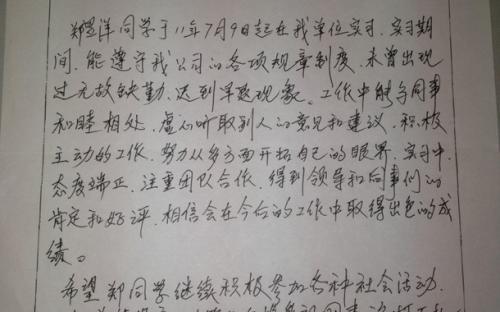 郑昱洋同学于11年7月9日起在我单位实习,实习期
间,能遵守我公司的各项规章制度,未曾出现
过无故缺勤、迟到早退现象。工作中能与同事
和睦相处,虚心听取别人的意见和建议,积极
主动的工作,努力从多方面开拓自己的眼界,实习中,
态度端正,注重团队合作,得到领导和同事们的
肯定和好评,相信会在今后的工作中取得出色的成
绩。
希望郑同学继续积极参加各种社会活动,